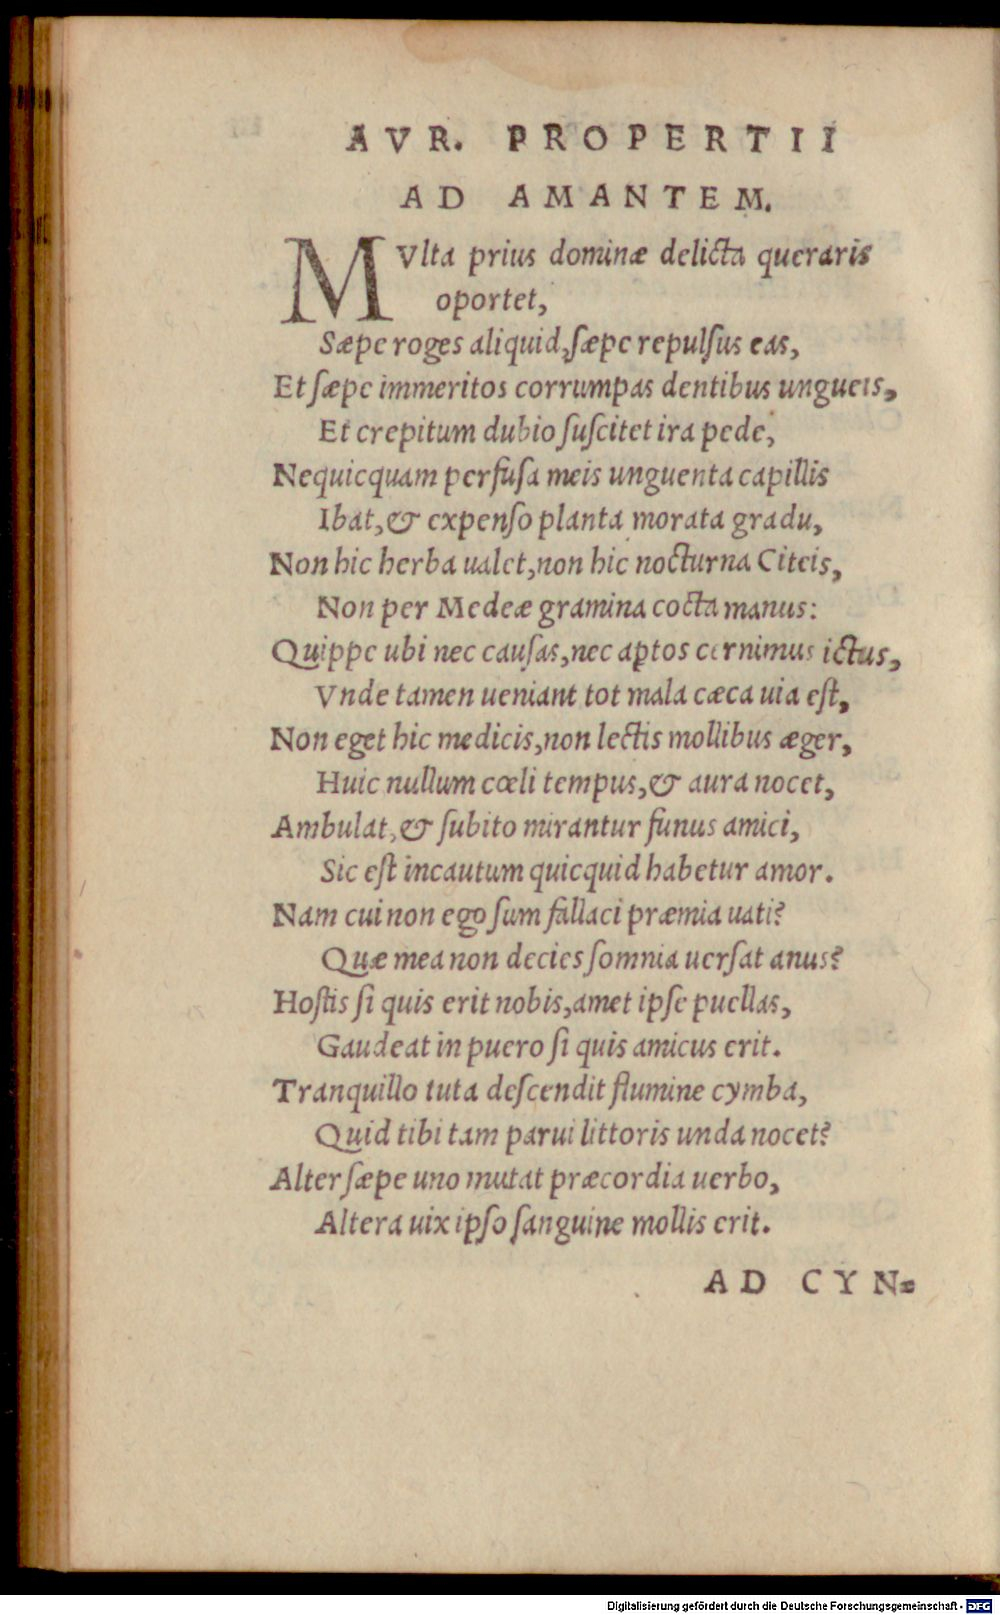 AVR. PROPERTII
AD AMANTEM.
MVlta prius dominæ delicta queraris
oportet,
Sæpe roges aliquid, sæpe repulſus eas,
Et ſæpe immeritos corrumpas dentibus ungueis,
Et crepitum dubio ſuſcitet ira pede,
Nequicquam perfuſa meis unguenta capillis
Ibat, & expenſo planta morata gradu,
Non hic herba ualet, non hic nocturna Citeis,
Non per Medeæ gramina cocta manus:
Quippe ubi nec cauſas, nec aptos cernimus ictus,
Vnde tamen ueniant tot mala cæca uia eſt,
Non eget hic medicis, non lectis mollibus æger,
Huic nullum cœli tempus, & aura nocet,
Ambulat, & ſubito mirantur funus amici,
Sic eſt incautum quicquid habetur amor.
Nam cui non ego ſum fallaci præmia uati?
Quæ mea non decies ſomnia uerſat anus?
Hoſtis ſi quis erit nobis, amet ipſe puellas,
Gaudeat in puero ſi quis amicus erit.
Tranquillo tuta deſcendit flumine cymba,
Quid tibi tam parui littoris unda nocet?
Alter ſæpe uno mutat præcordia uerbo,
Altera uix ipſo ſanguine mollis erit.
AD CYN=
Digitalisierung gefördert durch die Deutsche Forschungsgemeinschaft - DFG